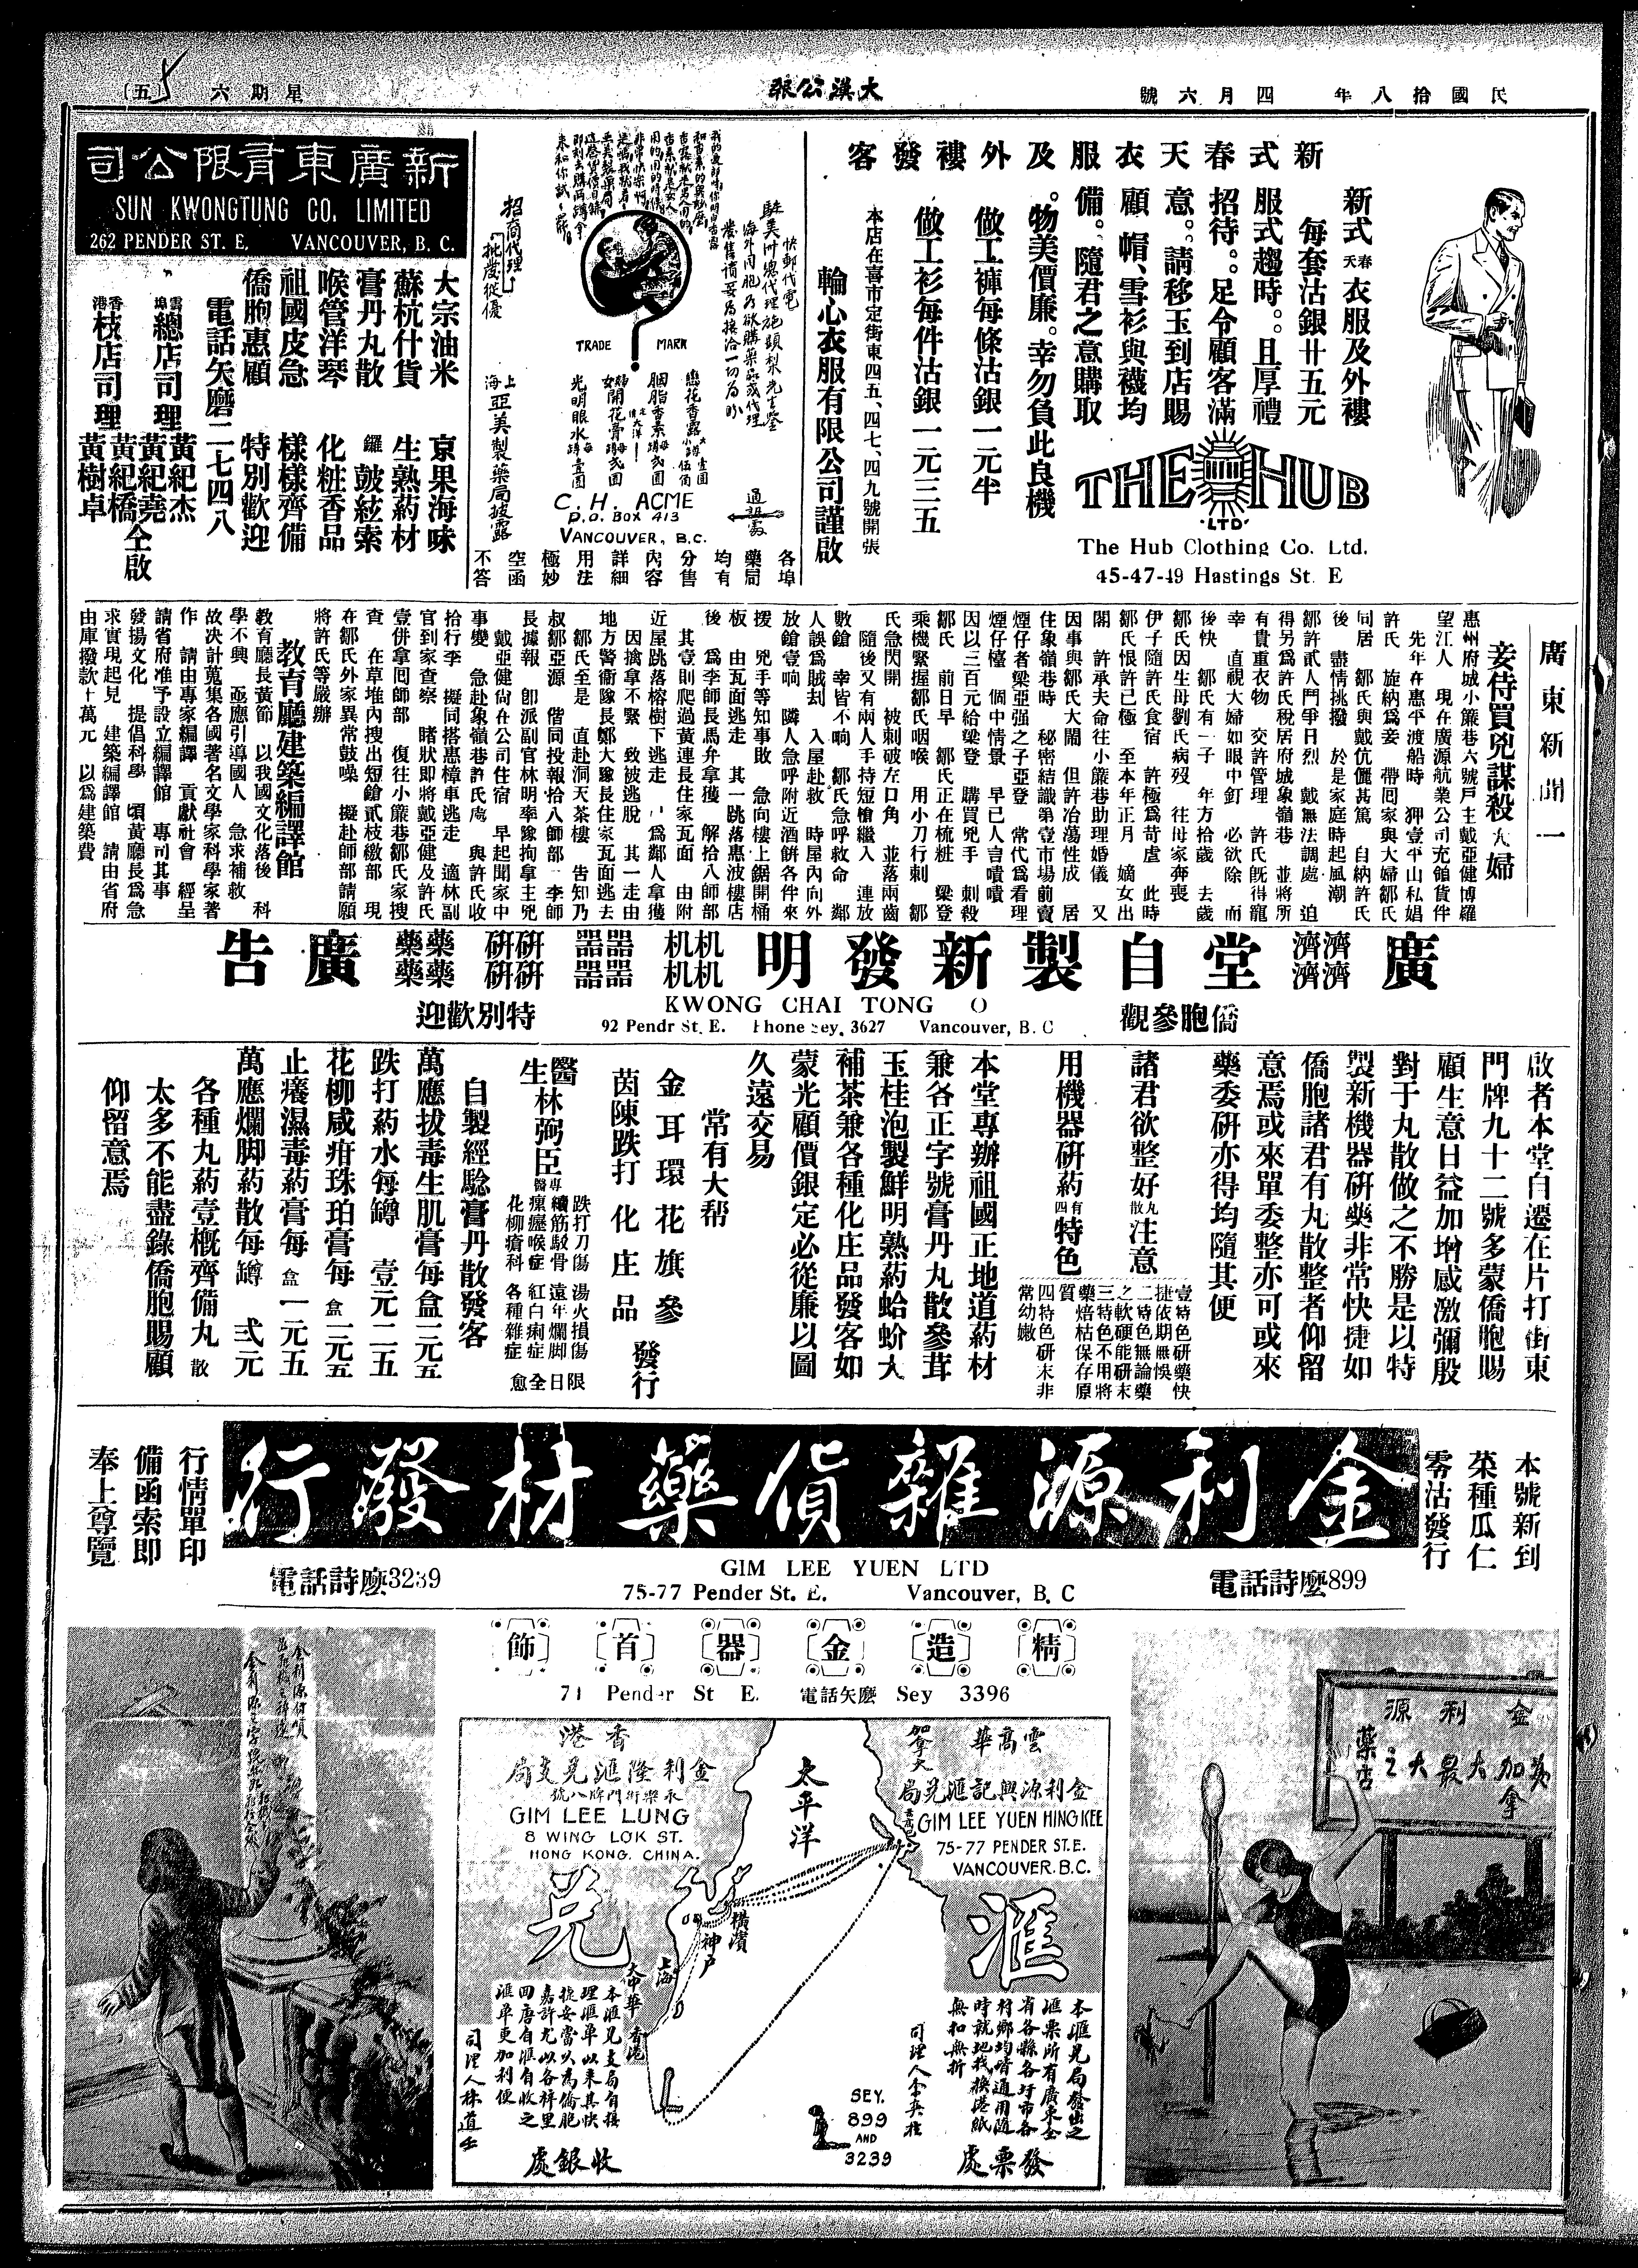 民國拾八年 四月六號
大漢公報
星期六
(五)
新式春天衣服及外褸發客
新式春天衣服及外褸
每套沽銀廿五元
服式趨時。且厚禮
招待。足令顧客滿
意。請移玉到店賜
顧 帽、雪衫與襪均
備。隨君之意購取
。物美價廉。幸勿負此良機
做工褲每條沽銀一元半
做工衫每件沽銀一元三五
本店在喜市定街東四五、四七、四九號開張
輪心衣服有限公司謹啟
THE HUB
LTD
The Hub Clothing Co. Ltd.
45-47-49 Hastings St. E
快郵代電
海外同胞為欲購藥品或代理
招商代理
批發從優
TRADE MARK
戀花香露
胭脂香素
光明眼水
上海亞美製藥局披露
C. H. ACME
P.O. BOX 413
VANCOUVER, B.C.
通訊處
各埠
藥局
均有
分售
內容
詳細
用法
極妙
空函
不答
新廣東有限公司
SUN KWONGTUNG CO. LIMITED
262 PENDER ST. E. VANCOUVER, B. C.
大宗油米 京果海味
蘇杭什貨 生熟葯材
膏丹丸散 鑼鼓絃索
喉管洋琴 化粧香品
祖國皮急 樣樣齊備
僑胞惠顧 特別歡迎
電話矢磨二七四八
雲埠總店司理 黃紀杰
黃紀堯
香港枝店司理 黃紀橋
黃樹卓
仝啟
廣東新聞一
妾侍買兇謀殺大婦
惠州府城小簾巷六號戶主戴亞健博羅
望江人 現在廣源航業公司充領貨伴
先年在惠平渡船時 狎壹平山私娼
許氏 旋納為妾 帶囘家與大婦鄒氏
同居 鄒氏與戴伉儷甚篤 自納許氏
後 盡情挑撥 於是家庭時起風潮
鄒許貳人鬥爭日烈 戴無法調處 迫
得另為許氏稅居府城象嶺巷 並將所
有貴重衣物 交許管理 許氏既得寵
幸 直視大婦如眼中釘 必欲除 而
後快 鄒氏有一子 年方拾歲 去歲
鄒氏因生母劉氏病歿 往母家奔喪
伊子隨許氏食宿 許極為苛虐 此時
鄒氏恨許已極 至本年正月 嫡女出
閣 許承夫命往小簾巷助理婚儀 又
因事與鄒氏大閙 但許冶蕩性成 居
住象嶺巷時 秘密結識第壹市場前賣
煙仔者梁亞强之子亞登 常代為看理
煙仔檯 個中情景 早已人言嘖嘖
因以三百元給梁登 購買兇手 刺殺
鄒氏 前日早 鄒氏正在梳粧 梁登
乘機緊握鄒氏咽喉 用小刀行刺 鄒
氏急閃開 被刺破左口角 並落兩齒
隨後又有兩人手持短槍繼入 連放
數鎗 幸皆不响 鄒氏急呼救命 鄰
人誤為賊刦 入屋赴救 時屋內向外
放鎗壹响 隣人急呼附近酒餅各伴來
援 兇手等知事敗 急向樓上鋸開桶
板 由瓦面逃走 其一跳落惠波樓店
後 為李師長馬弁拿獲 解拾八師部
其壹則爬過黃連長住家瓦面 由附
近屋跳落榕樹下逃走 為鄰人拿獲
因擒拿不緊 致被逃脫 其一走由
地方警衛隊長鄭大豫長住家瓦面逃去
鄒氏至是 直赴洞天茶樓 告知乃
叔鄒亞源 偕同投報恰八師部 李師
長據報 即派副官林明率隊拘拿主兇
戴亞健尚在公司住宿 早起聞家中
事變 急赴象嶺巷許氏處 與許氏收
拾行李 擬同搭惠樟車逃走 適林副
官到家查察 睹狀即將戴亞健及許氏
壹併拿囘師部 復往小簾巷鄒氏家搜
查 在草堆內搜出短鎗貳枝繳部 現
在鄒氏外家異常鼓噪 擬赴師部請願
將許氏等嚴辦
教育廳建築編譯館
教育廳長黃節 以我國文化落後 科
學不興 亟應引導國人 急求補救
故决計蒐集各國著名文學家科學家著
作 請由專家編譯 貢獻社會 經呈
請省府准予設立編譯館 專司其事
發揚文化 提倡科學 頃黃廳長為急
求實現起見 建築編譯館 請由省府
由庫撥款十萬元 以為建築費
廣濟濟濟濟堂自製新發明机机机机器器器器研研研研藥藥藥藥廣告
僑胞參觀
KWONG CHAI TONG O
92 Pendr St. E. Phone Sey. 3627 Vancouver, B. C
特別歡迎
啟者本堂自遷在片打街東
門牌九十二號多蒙僑胞賜
顧生意日益加增感激彌殷
對于丸散做之不勝是以特
製新機器研藥非常快捷如
僑胞諸君有丸散整者仰留
意焉或來單委整亦可或來
藥委研亦得均隨其便
諸君欲整好丸散注意
用機器研葯有四特色
壹特色研藥快
捷依期無悞
二特色無論藥
之軟硬能研末
三特色不用將
藥焙枯保存原
質
四特色研末非
常幼嫩
本堂專辦祖國正地道葯材
兼各正字號膏丹丸散參茸
玉桂泡製鮮明熟葯蛤蚧大
補茶兼各種化庄品發客如
蒙光顧價銀定必從廉以圖
久遠交易
常有大帮
金耳環花旗參
茵陳跌打化庄品
發行
醫生林弼臣專醫
跌打刀傷 湯火損傷 限
續筋駁骨 遠年爛脚 日
瘰癧喉症 紅白痢症 全
花柳瘡科 各種雜症 愈
自製經騐膏丹散發客
萬應拔毒生肌膏每盒一元五
跌打葯水每罇 壹元二五
花柳咸疳珠珀膏每盒一元五
止癢濕毒葯膏每盒一元五
萬應爛脚葯散每罇 弍元
各種丸葯壹概齊備丸散
太多不能盡錄僑胞賜顧
仰留意焉
本號新到
菜種瓜仁
零沽發行
金利源雜貨藥材發行
行情單印
備函索即
奉上尊覽
電話詩麽899
GIM LEE YUEN LTD
75-77 Pender St. E. Vancouver, B. C
電話詩麽3239
精造金器首飾
71 Pender St E. 電話矢麽 Sey 3396
金利源
為加拿大最大之藥店
加拿大
雲高華
金利源興記滙兌局
GIM LEE YUEN HING KEE
75-77 PENDER ST. E.
VANCOUVER. B.C.
滙
本滙兌局發出之
滙票所有廣東全
省各縣各圩市各
村鄉均皆通用隨
時就地找換港紙
無扣無折
發票處
太平洋
橫濱
神户
上海
大中華
香港
SEY.
899
AND
3239
香港
金利隆滙兌支局
永樂街門牌八號
GIM LEE LUNG
8 WING LOK ST.
HONG KONG. CHINA.
兌
本滙兌支局自接
理滙單以來其快
捷妥當久為僑胞
嘉許尤以各梓里
回唐自滙自收之
滙單更加利便
司理人林道壬
收銀處